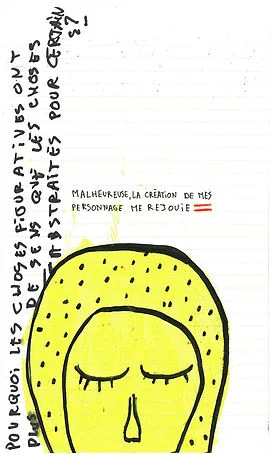 POURQUOI LES CHOSES FIGURATIVES ONT
PLUS DE SENS QUE LES CHOSES
ABSTRAITES POUR CERTAIN
S?
MALHEUREUSE, LA CRÉATION DE MES
PERSONNAGE ME REJOUIE